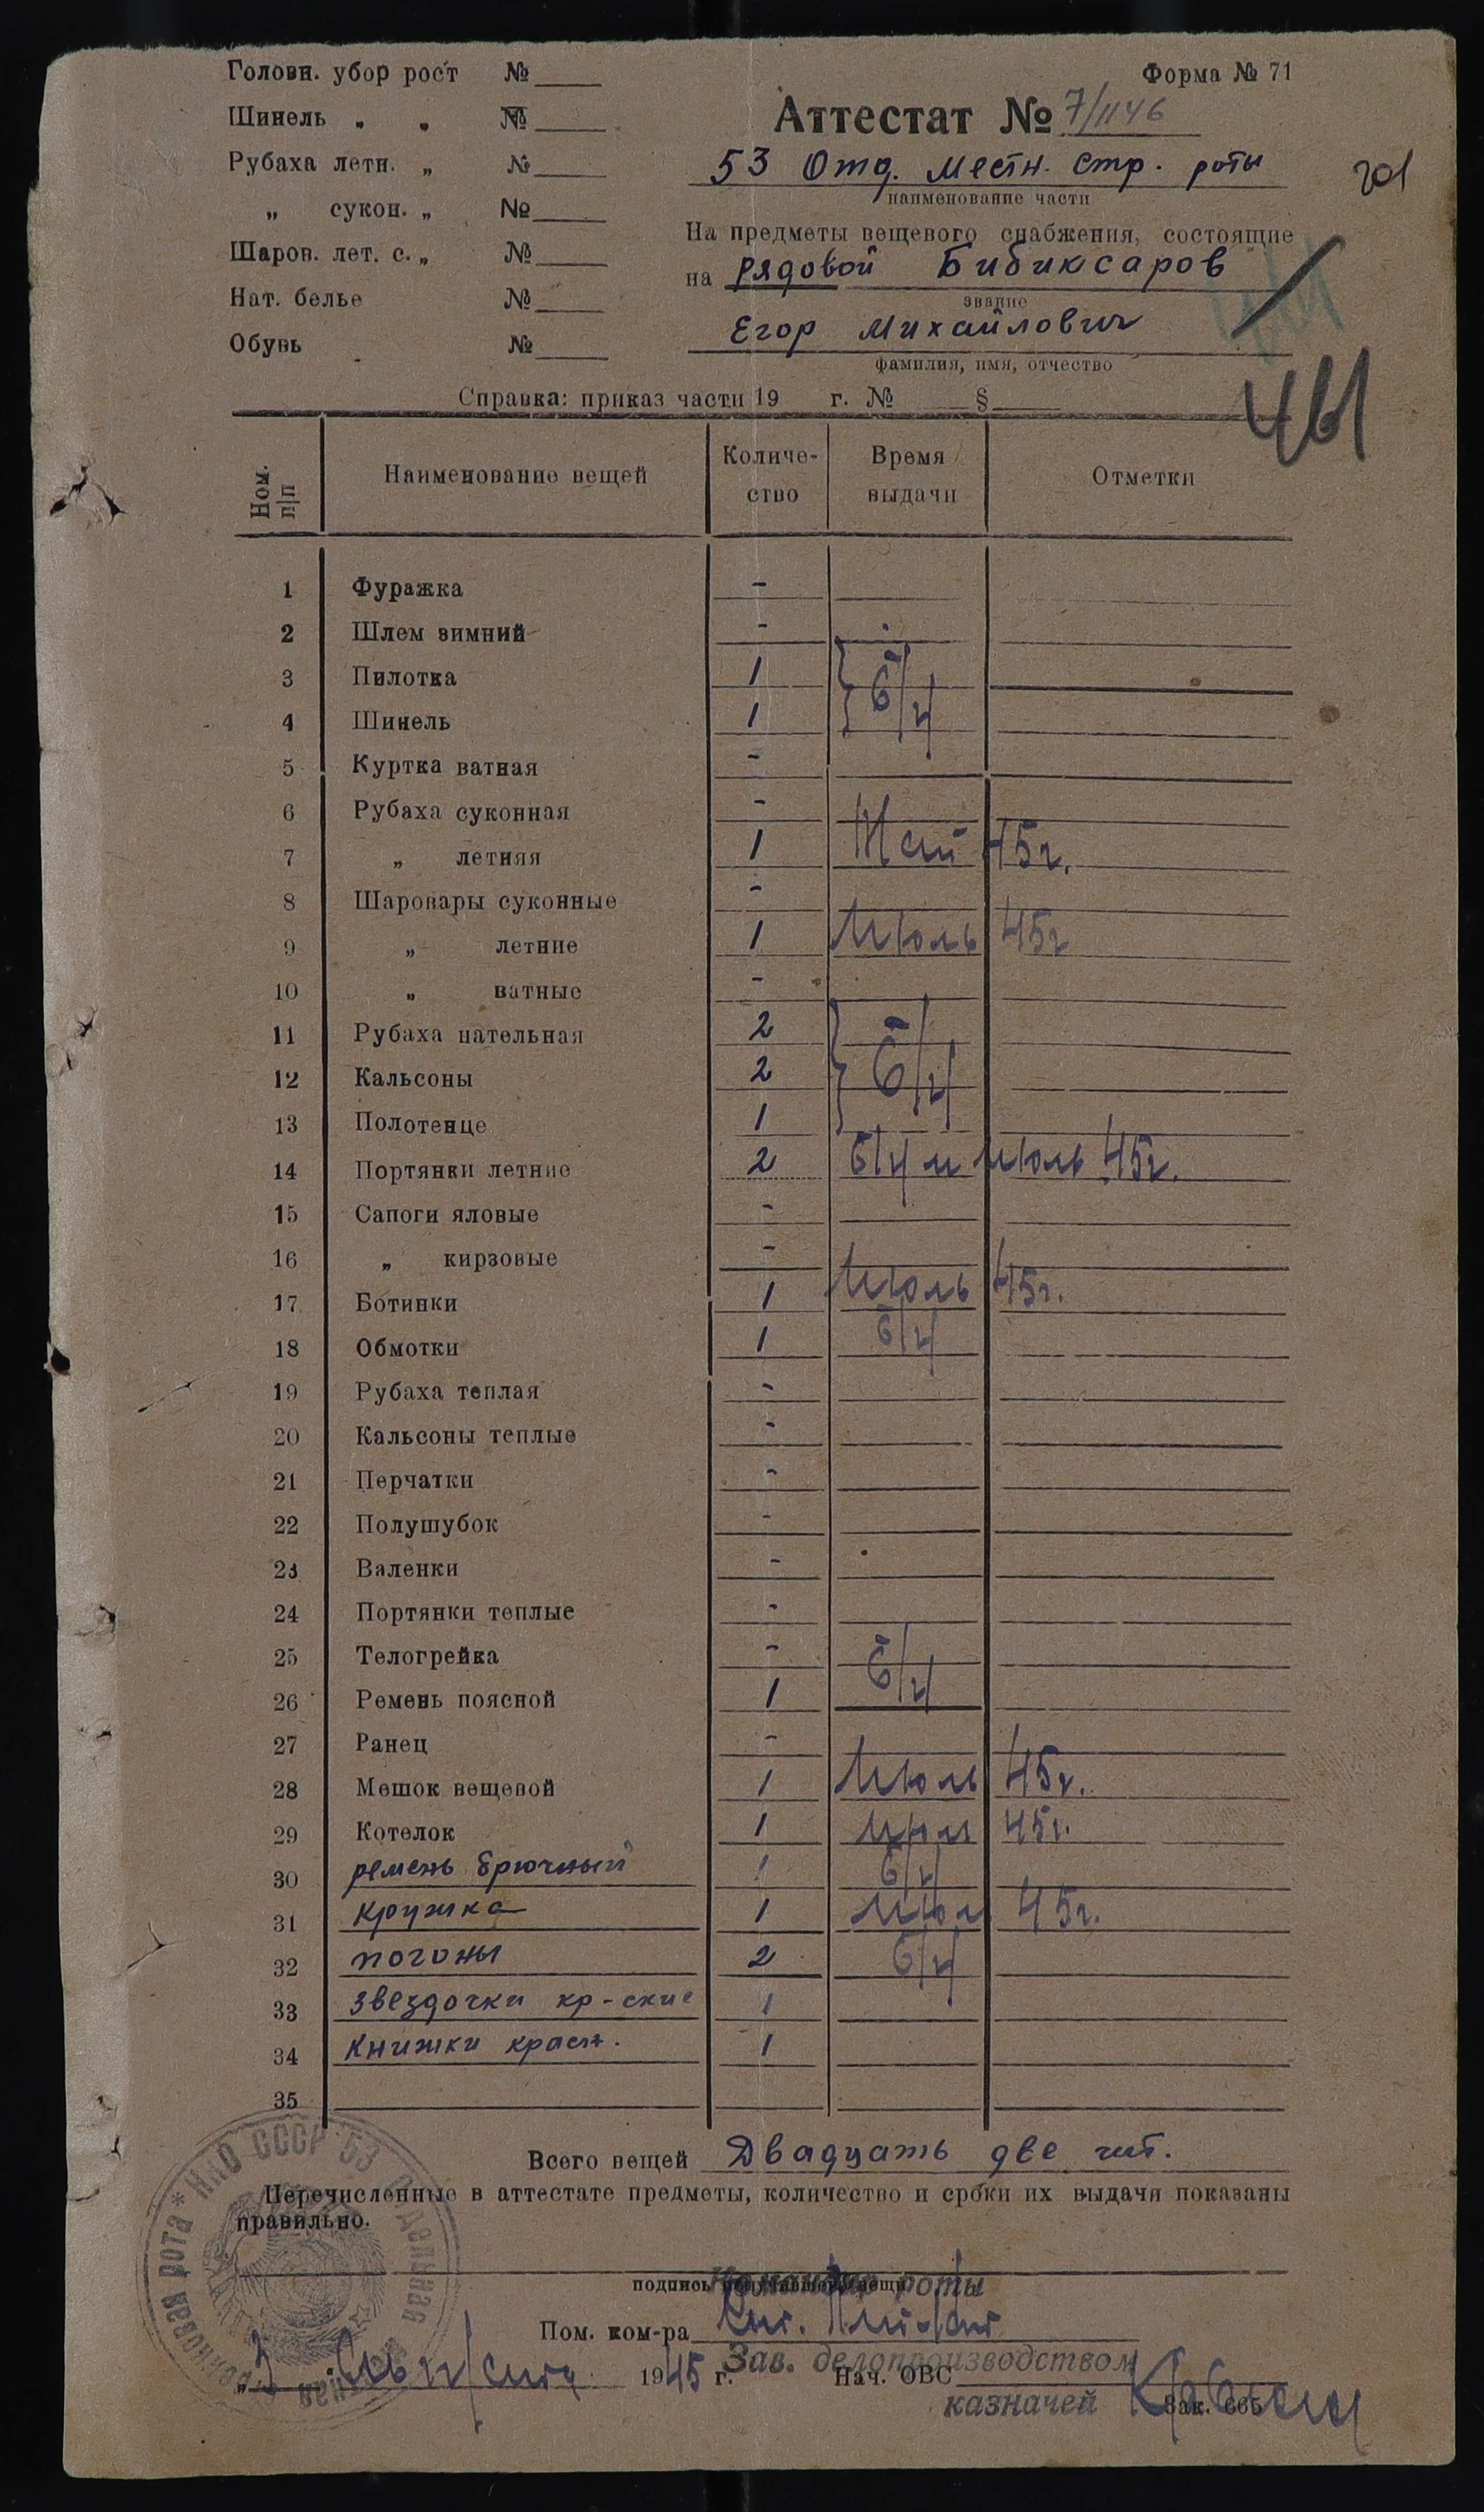 Головн. убор рост №
Форма № 71
Шинель „ „ №
Аттестат № 7/1146
Рубаха летн. „ №
53 Отд. местн. стр. роты
201
наименование части
„ сукон. „ №
На предметы вещевого снабжения, состоящие
Шаров. лет. с. „ №
на рядовой Бибиксаров
звание
Нат. белье №
Егор Михайлович
Обувь №
фамилия, имя, отчество
Справка: приказ части 19 г. № §
Ном. п/п
Наименование вещей
Количе-
ство
Время
выдачи
Отметки
1 Фуражка -
2 Шлем зимний -
3 Пилотка 1 б/ч
4 Шинель 1
5 Куртка ватная -
6 Рубаха суконная -
7 „ летняя 1 Май 45г.
8 Шаровары суконные -
9 „ летние 1 Июль 45г
10 „ ватные -
11 Рубаха нательная 2
12 Кальсоны 2 б/ч
13 Полотенце 1
14 Портянки летние 2 б/ч и июль 45г.
15 Сапоги яловые -
16 „ кирзовые -
17 Ботинки 1 Июль 45г.
18 Обмотки 1 б/ч
19 Рубаха теплая -
20 Кальсоны теплые -
21 Перчатки -
22 Полушубок -
23 Валенки -
24 Портянки теплые -
25 Телогрейка -
26 Ремень поясной 1 б/ч
27 Ранец -
28 Мешок вещевой 1 Июль 45г.
29 Котелок 1 45г.
30 ремень брючный 1 б/ч
31 кружка 1 45г.
32 погоны 2 б/ч
33 звездочки кр-ские 1
34 книжки красн. 1
35
Всего вещей Двадцать две шт.
Перечисленные в аттестате предметы, количество и сроки их выдачи показаны
правильно.
НКО СССР 53 отдельная местная стрелковая рота
подпись
Командир роты
Пом. ком-ра
Зав. делопроизводством
1945 г.
Нач. ОВС
казначей
Зак. 665